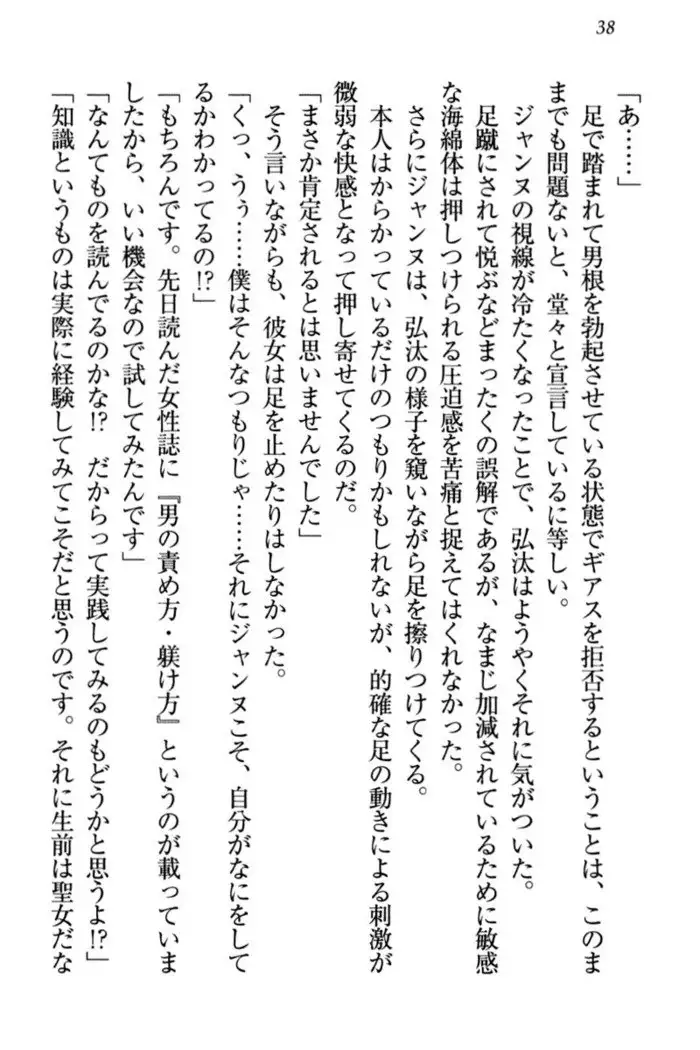 38
「あ……」
足で踏まれて男根を勃起させている状態でギアスを拒否するということは、このま
までも問題ないと、堂々と宣言しているに等しい。
ジャンヌの視線が冷たくなったことで、弘汰はようやくそれに気がついた。
足蹴にされて悦ぶなどまったくの誤解であるが、なまじ加減されているために敏感
な海綿体は押しつけられる圧迫感を苦痛と捉えてはくれなかった。
さらにジャンヌは、弘汰の様子を窺いながら足を擦りつけてくる。
本人はからかっているだけのつもりかもしれないが、的確な足の動きによる刺激が
微弱な快感となって押し寄せてくるのだ。
「まさか肯定されるとは思いませんでした」
そう言いながらも、彼女は足を止めたりはしなかった。
「くっ、うぅ……僕はそんなつもりじゃ……それにジャンヌこそ、自分がなにをして
るかわかってるの!?」
「もちろんです。先日読んだ女性誌に『男の責め方・躾け方』というのが載っていま
したから、いい機会なので試してみたんです」
「なんてものを読んでるのかな!?　だからって実践してみるのもどうかと思うよ!?」
「知識というものは実際に経験してみてこそだと思うのです。それに生前は聖女だな